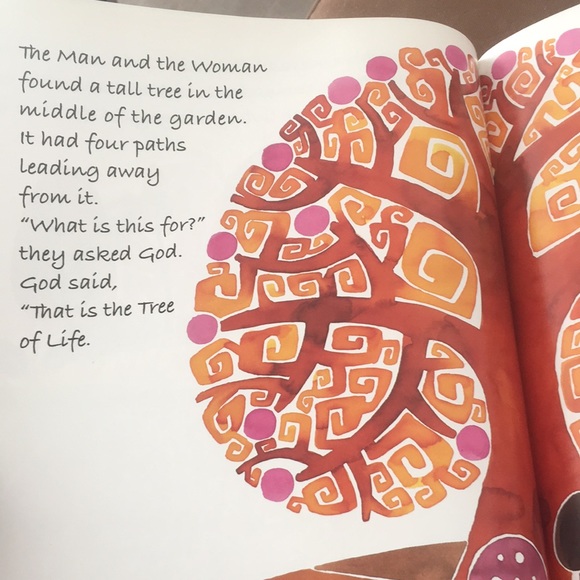 The Man and the Woman
found a tall tree in the
middle of the garden.
It had four paths
leading away
from it.
“What is this for?”
they asked God.
God said,
“That is the Tree
of Life.